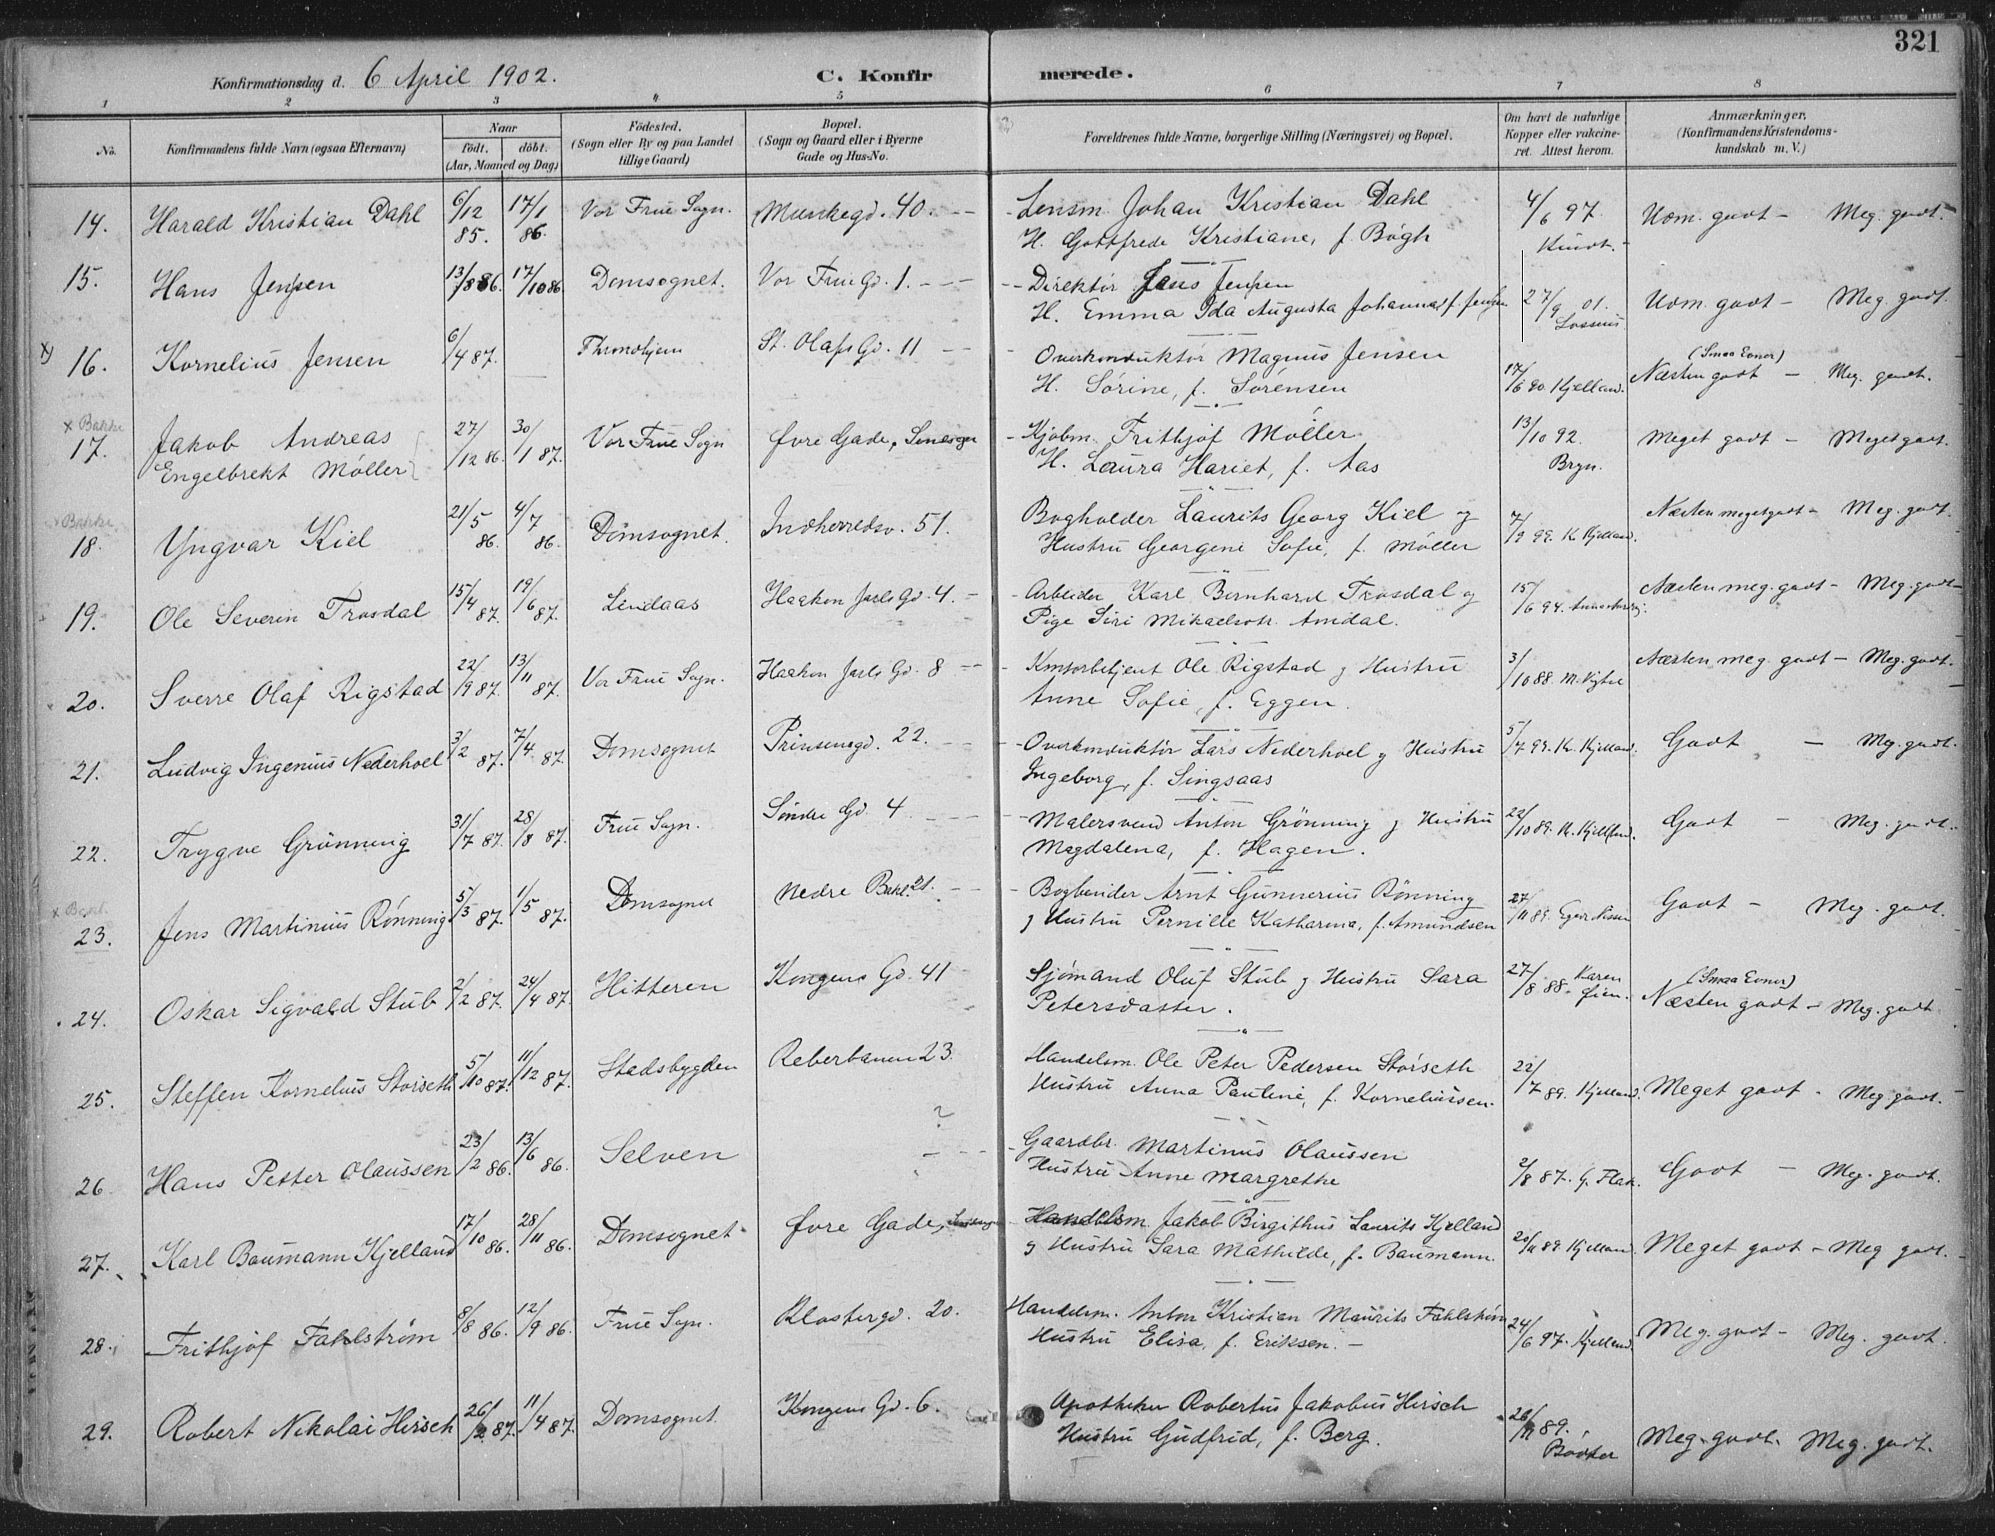 321
Konfirmationsdag d. 6 April 1902. C. Konfir merede.
1 2 3 4 5 6 7 8
No. Konfirmandens fulde Navn (ogsaa Efternavn) Naar født. døbt. (Aar, Maaned og Dag) Fødested. (Sogn eller By og paa Landet tillige Gaard) Bopæl. (Sogn og Gaard eller i Byerne Gade og Hus-No. Forældrenes fulde Navne, borgerlige Stilling (Næringsvei) og Bopæl. Om havt de naturlige Kopper eller vakcineret. Attest herom. Anmærkninger. (Konfirmandens Kristendomskundskab m. V.)
14. Harald Kristian Dahl 6/12 85. 17/1 86. Vor Frue Sogn. Munkegd. 40. Lensm. Johan Kristian Dahl 4/6 97. Udm. godt - Meg. godt.
H. Gottfrede Kristiane, f. Bøgh
15. Hans Jensen 13/8 86. 17/10 86. Domsognet. Vor Frue Gd. 1. Direktør Jens Jensen 27/9 01. Udm. godt - Meg. godt.
H. Emma Ida Augusta Johanna, f. Jensen
16. Kornelius Jensen 6/4 87. Throndhjem St. Olafs Gd. 11 Overkonduktør Magnus Jensen (Smaa Evner)
H. Sørine, f. Sørensen 17/6 90. Kjelland. Næsten godt - Meg. godt.
x Bakke
17. Jakob Andreas 27/12 86. 30/1 87. Vor Frue Sogn Øvre Gade, Kjøbm. Frithjof Møller 13/10 92. Meget godt - Meget godt.
Engelbrekt Møller H. Laura Hariet, f. Aas Bryn.
x Bakke
18. Yngvar Kiel 21/5 86. 4/7 86. Domsognet. Indherredsv. 51. Bogholder Laurits Georg Kiel og 7/9 99. K. Kjelland. Næsten meget godt - Meg. godt.
Hustru Georgine Sofie, f. Møller
19. Ole Severin Trosdal 15/4 87. 19/6 87. Lindaas Haakon Jarls Gd. 4. Arbeider Karl Bernhard Trosdal og 15/6 94. Næsten meg. godt - Meg. godt
Pige Siri Mikaelsdtr. Amdal.
20. Sverre Olaf Rigstad 22/9 87. 13/11 87. Vor Frue Sogn. Haakon Jarls Gd. 8 Kontorbetjent Ole Rigstad og Hustru 3/10 88. Næsten meg. godt - Meg. godt.
Anne Sofie, f. Eggen.
21. Ludvig Ingenius Nederhoel 3/2 87. 7/4 87. Domsognet Prinsensgd. 22. Overkonduktør Lars Nederhoel og Hustru K. Kjelland. Godt - Meg. godt.
Ingeborg, f. Singsaas
22. Trygve Grønning 31/7 87. 28/8 87. Frue Sogn. Søndre Gd. 4 Malersvend Anton Grønning og Hustru 22/10 89. K. Kjelland. Godt - Meg. godt.
Magdalena, f. Hagen.
23. Jens Martinius Rønning 5/3 87. 1/5 87. Domsognet Nedre Bakl. 21. Bogbinder Arnt Gunnerius Rønning 27/11 89. Godt - Meg. godt.
og Hustru Pernille Katharina, f. Amundsen
24. Oskar Sigvald Stub 2/2 87. 24/4 87. Hitteren Kongens Gd. 41 Sjømand Oluf Stub og Hustru Sara 27/8 88. Karen (Smaa Evner)
Petersdatter. Næsten godt - Meg. godt
25. Steffen Kornelius Størseth 5/10 87. 11/12 87. Stadsbygden Reberbanen 23. Handelsm. Ole Peter Pedersen Størseth 22/7 89. Kjelland. Meget godt - Meg. godt.
Hustru Anna Pauline, f. Korneliussen.
26 Hans Petter Olaussen 23/2 86. 13/6 86. Selven ? Gaardbr. Martinus Olaussen 2/8 87. G. Flak. Godt - Meg. godt.
Hustru Anne Margrethe
27. Karl Baumann Kjelland 17/10 86. 28/11 86. Domsognet Øvre Gade, Handelsm. Jakob Birgithus Laurits Kjelland Kjelland Meget godt - Meg godt.
og Hustru Sara Mathilde, f. Baumann.
28. Frithjof Fahlstrøm 8/8 86. 12/9 86. Frue Sogn. Klostergd. 20. Handelsm. Anton Kristian Maurits Fahlstrøm 24/6 97. Kjelland Meg. godt - Meg. godt.
Hustru Elisa, f. Eriksen. -
29. Robert Nikolai Hirsch 26/2 87. 11/4 87. Domsognet. Kongens Gd. 6. Apotheker Robertus Jakobus Hirsch 26/11 89. Meg. godt. Meg. godt.
Hustru Gudfrid, f. Berg.